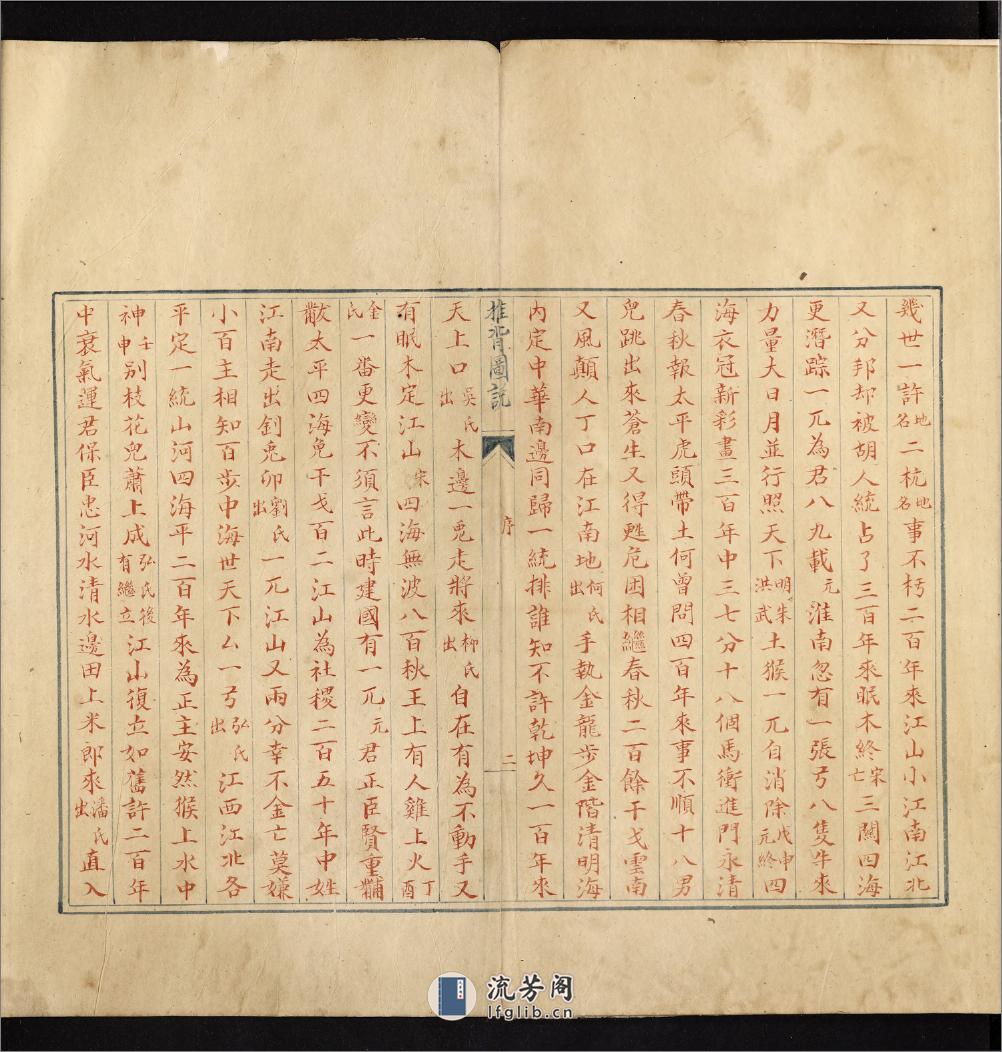 幾世一許地名二杭地名事不朽二百年來江山小江南江北
又分邦却被胡人統占了三百年來眠木終宋亡三闗四海
更潛踪一兀為君八九載元淮南忽有一張弓八隻牛來
力量大日月並行照天下明朱洪武土猴一兀自消除戊申元終四
海衣冠新彩畫三百年中三七分十八個馬衝進門永清
春秋報太平虎頭帶土何曽問四百年來事不順十八男
兒跳出來蒼生又得甦危困相繼春秋二百餘干戈雲南
又風顛人丁口在江南地何氏出手執金龍步金階清明海
內定中華南邊同歸一統排誰知不許乾坤久一百年來
推背圖說
序
二
天上口吳氏出木邊一兎走將來柳氏出自在有為不動手又
有眠木定江山宋四海無波八百秋王上有人雞上火丁酉
金氏一番更變不須言此時建國有一兀元君正臣賢重黼
黻太平四海免干戈百二江山為社稷二百五十年中姓
江南走出釗兎卯劉氏出一兀江山又兩分幸不金亡莫嫌
小百主相知百步中海世天下厶一弓弘氏出江西江北各
平定一統山河四海平二百年來為正主安然猴上水中
神壬申別枝花兒蕭上成弘氏後有繼立江山復立如舊許二百年
中衰氣運君保臣忠河水清水邊田上米郎來潘氏出直入
流芳阁
lfglib.cn